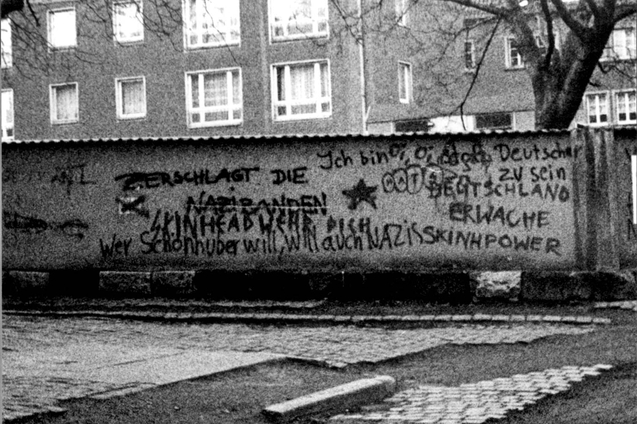 ZERSCHLAGT DIE
NAZIBANDEN
SKINHEAD WEHR DICH
Wer Schönhuber will, will auch NAZIS
Ich bin Deutscher
zu sein
DEUTSCHLAND
ERWACHE
SKINHPOWER